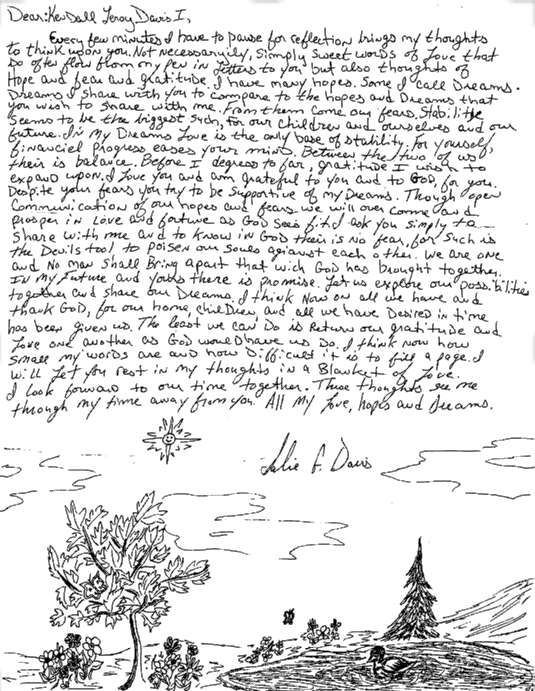 Dear: Kendall Leroy Davis I,
Every few minutes I have to pause for reflection brings my thoughts
to think upon you. Not necessaryily, simply sweet words of Love that
so often flow from my pen in Letters to you but also thoughts of
Hope and fear and gratitude. I have many hopes. Some I call Dreams.
Dreams I share with you to compare to the hopes and Dreams that
you wish to share with me. From them come our fears. Stability
seems to be the biggest such, for our children and ourselves and our
future. In my Dreams Love is the only base of stability. For yourself,
financiel progress eases your mind. Between the two of us
their is balance. Before I degress to far, gratitude I wish to
expand upon. I Love you and am grateful to you and to GOD, for you.
Despite your fears you try to be supportive of my Dreams. Though open
Communication of our hopes and fears we will over come and
prosper in Love and fortune as God sees fit. I ask you simply to
share with me and to know in God their is no fear, for such is
the Devils tool to poisen our souls against each other. We are one
and No man shall Bring apart that wich God has brought together.
In my Future and yours there is promise. Let us explore our possibilities
together and share our Dreams. I think Now on all we have and
thank God, for our home, children, and all we have Desired in time
has been given us. The least we can Do is Return our gratitude and
Love one another as God would have us Do. I think now how
small my words are and how Difficult it is to fill a page. I
will Let you rest in my thoughts in a Blanket of Love.
I look forward to our time together. These thoughts see me
through my time away from you. All my Love, hopes and Dreams.
Julie F. Davis